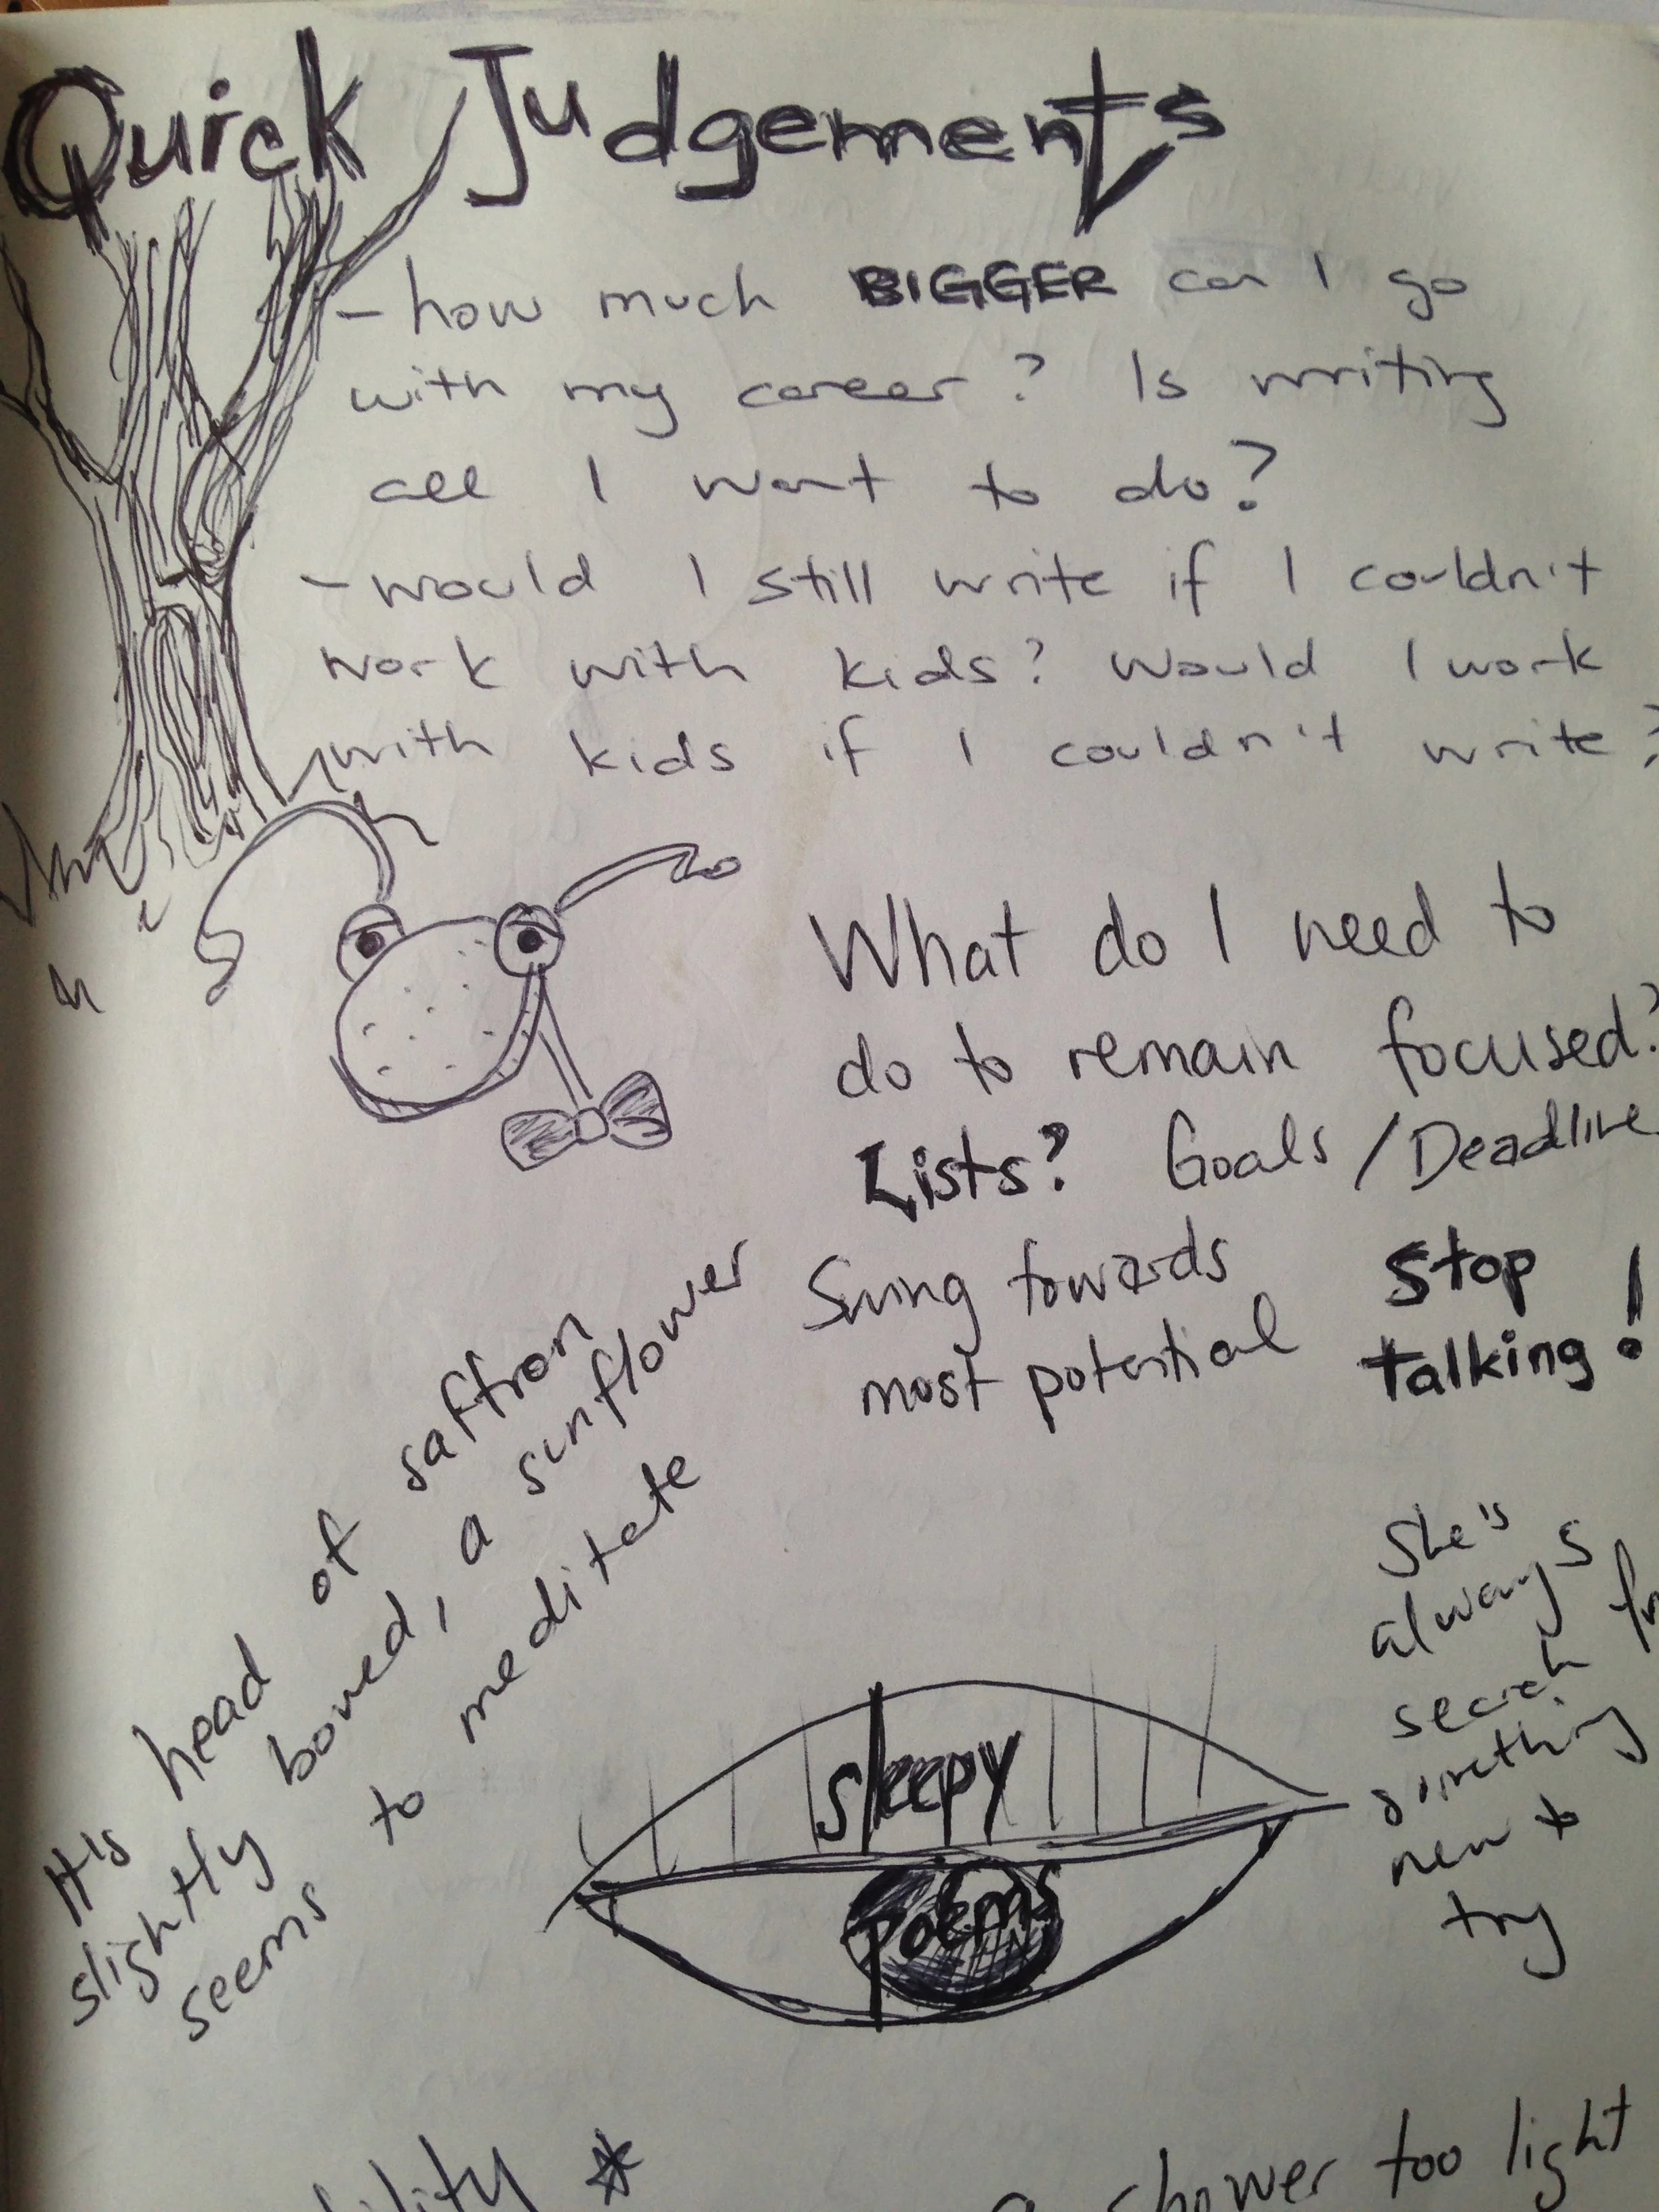 Quick Judgements
- how much BIGGER can I go
with my career? Is writing
all I want to do?
- would I still write if I couldn't
work with kids? Would I work
with kids if I couldn't write?
What do I need to
do to remain focused?
Lists? Goals / Deadline
Swing towards
most potential
Stop
talking!
It's head of saffron
slightly bowed, a sunflower
seems to meditate
She's
always
search for
something
new to
try
sleepy
poems
a shower too light